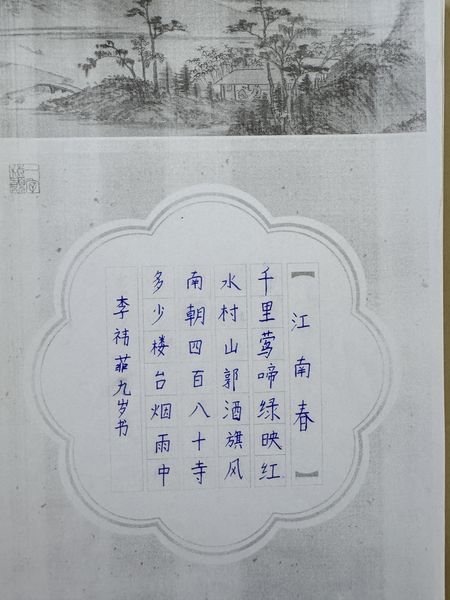 【江南春】
千里莺啼绿映红
水村山郭酒旗风
南朝四百八十寺
多少楼台烟雨中
李祎菲九岁书